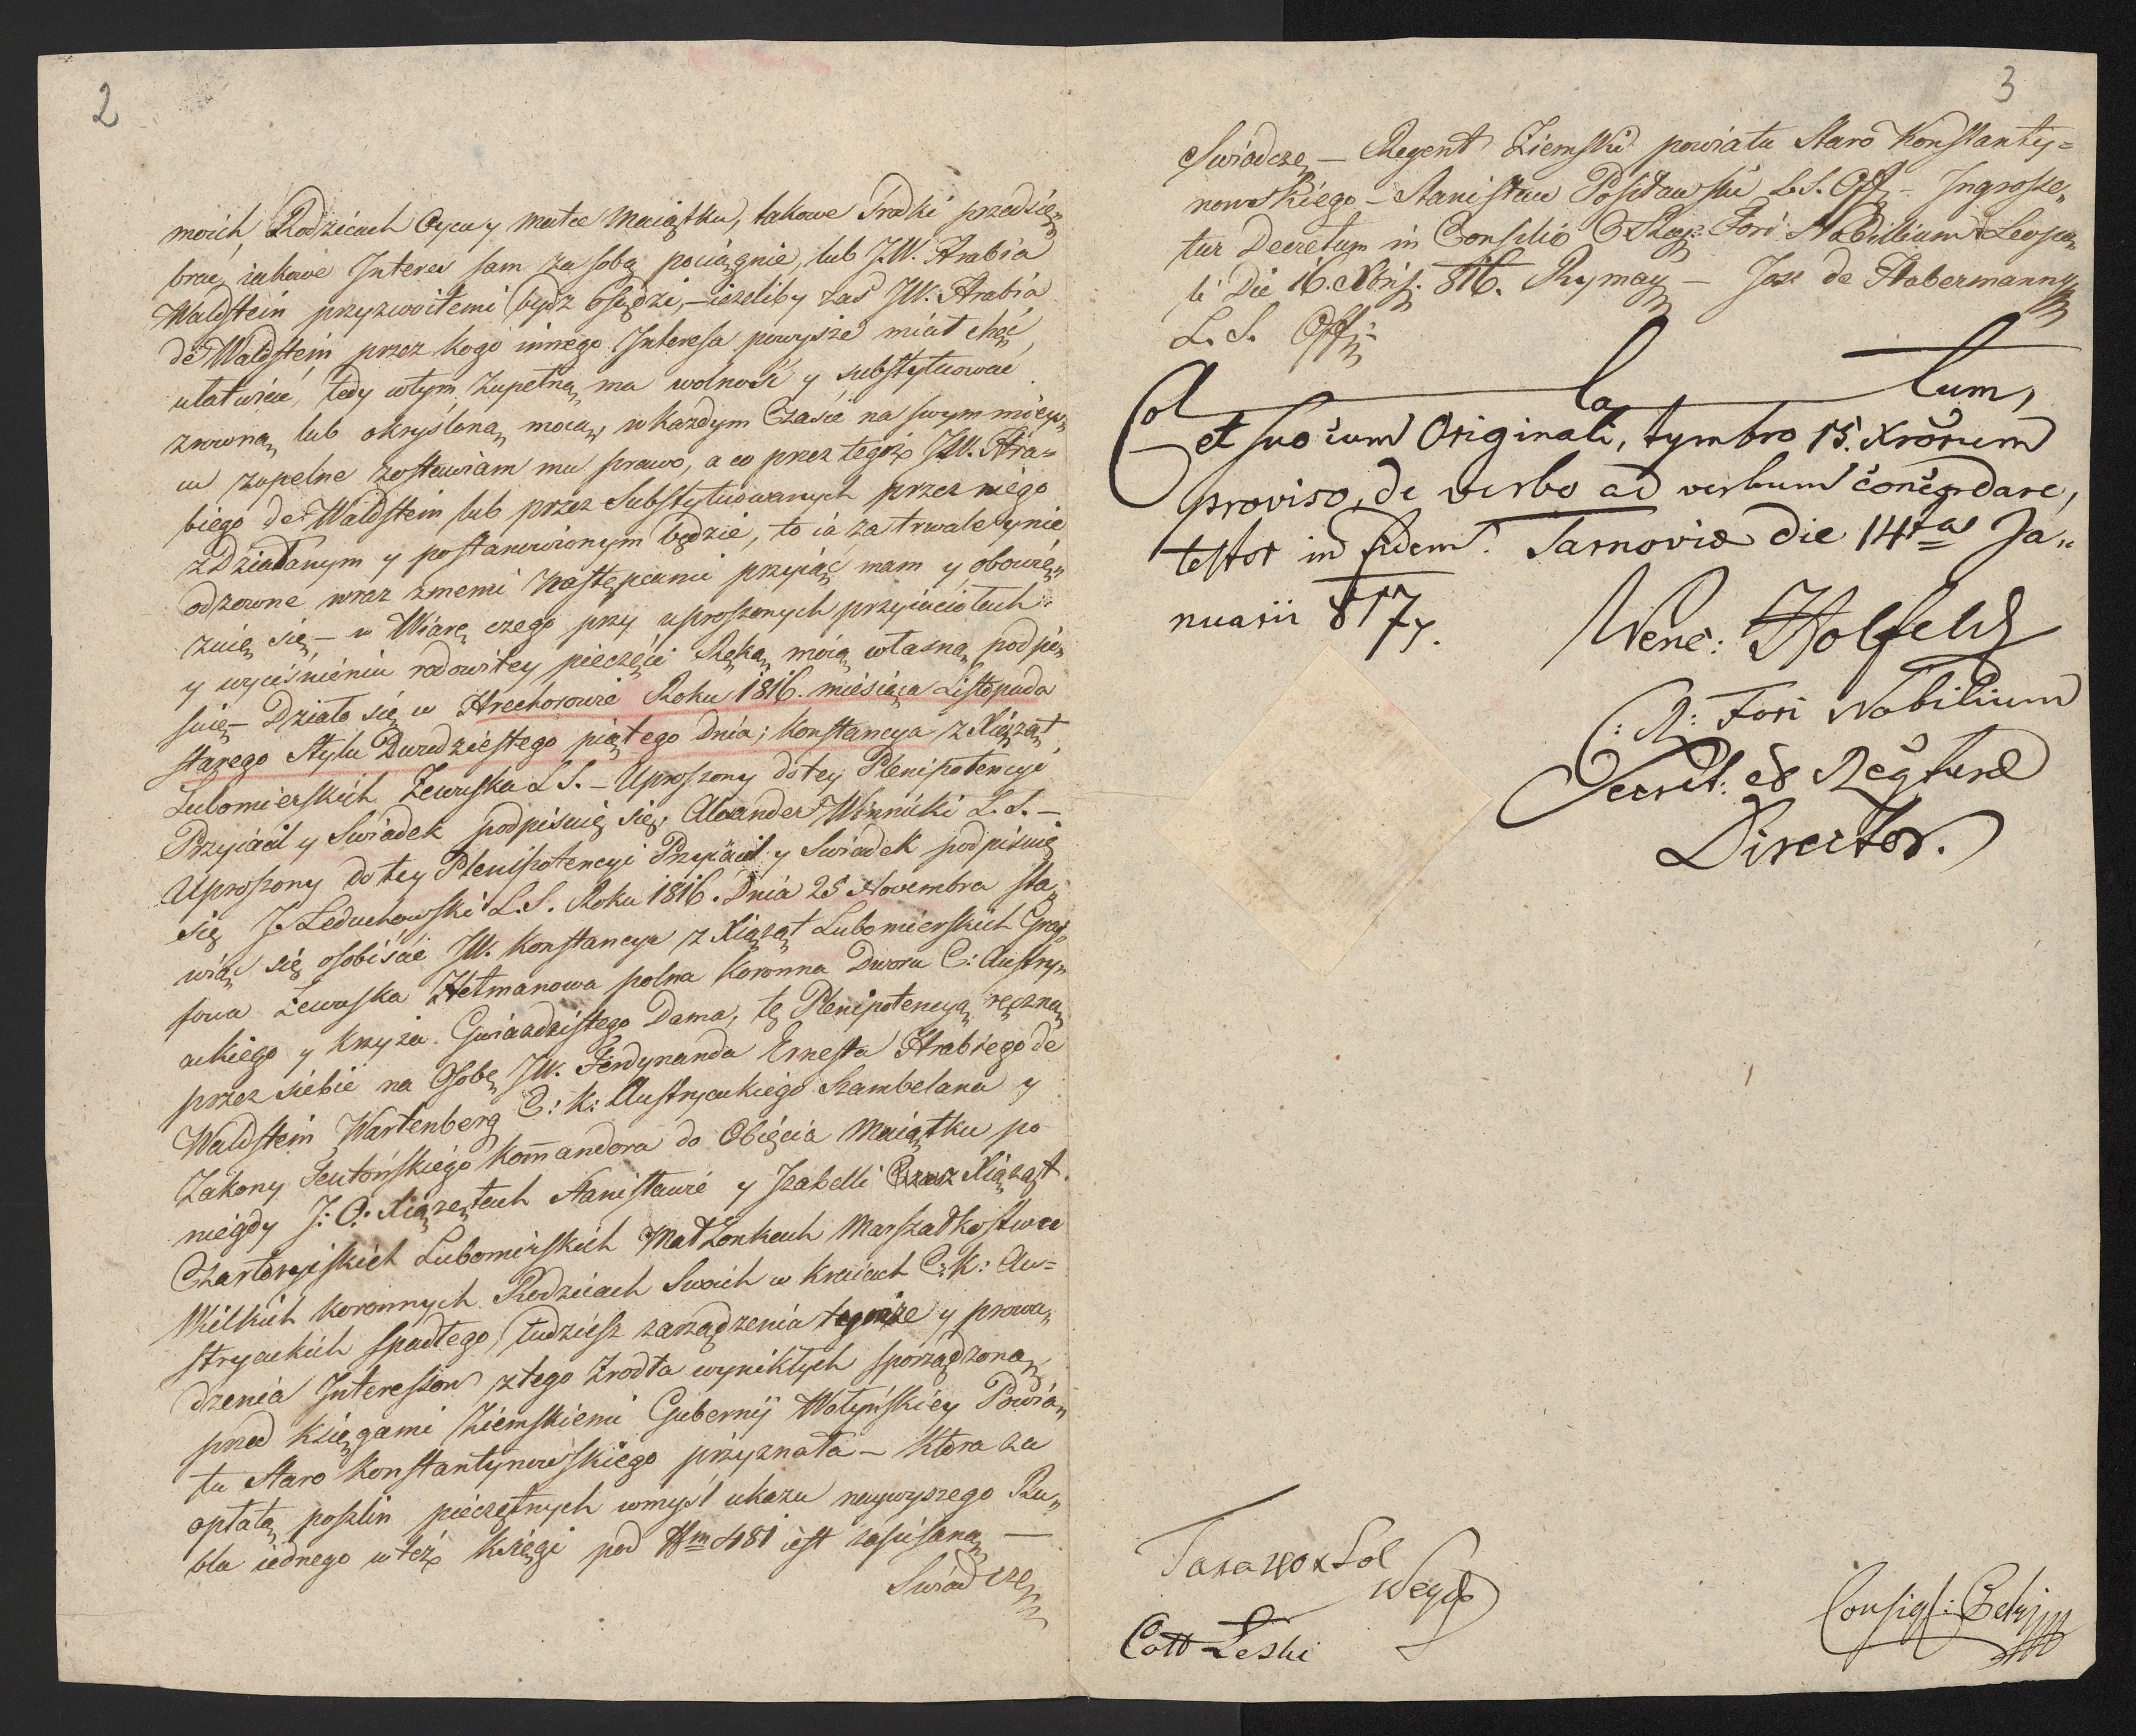 2
moich Rodzicach Oycu y matce Maiątku, takowe środki przedsię„
brac, iakowe Interes sam za sobą pociągnie, lub JW. Hrabia
Waldstein przyzwoitemi bydź osądzi, – ieżeliby zaś JW. Hrabia
de Waldstein przez kogo innego Interesa powyższe miał chęć
ułatwiać, tedy wtym zupełną ma wolność y substytuować
zrowną lub okryśloną mocą, w każdym Czasie na swym mieys„
cu zupełne zostawiam mu prawo, a co przez tegoż JW. Hra=
biego de Waldstein lub przez Substytuowanych przez niego
zdziałanym y postanowionym będzie, to ia za trwałe y nie
odzowne wraz zmemi następcami przyiąć mam y obowią„
zuię się, – w Wiarę czego przy uproszonych przyiaciołach
y wyciśnieniu rodowitey pieczęci Ręką moią własną podpi„
suię – Działo się w Hrechorowie Roku 1816. miesiąca Listopada
starego Stylu Dwudziestego piątego Dnia; Konstancya z Xiążąt
Lubomierskich Rzewuska L S. – Uproszony do tey Plenipotencyi
Przyiaciel y Swiadek podpisuię się, Alexander Winnicki L. S. –
Uproszony do tey Plenipotencyi Przyiaciel y Swiadek podpisuię
się J. Leduchowski L. S. Roku 1816. Dnia 25 Novembra sta„
wiąc się osobiście JW. Konstancya z Xiążąt Lubomierskich Gra„
fowa Rzewuska Hetmanowa polna Koronna Dworu C: Austry„
ackiego y Krzyża Gwiaździstego Dama, tę Plenipotencyą ręczną
przez siebie na Osobę JW. Ferdynanda Ernesta Hrabiego de
Waldstein Wartenberg C: K: Austryackiego Szambelana y
Zakony Teutońskiego Kommandora do Obięcia Maiątku po
niegdy J: O: Xiążętach Stanisławie y Izabelli Xiążąt
Czartoryiskich Lubomirskich Małżonkach Marszałkostwa
Wielkich Koronnych Rodzicach Swoich w Kraiach C: K: Au=
stryackich spadłego, tudziesz zarządzenia tymże y prowa„
dzenia Interessow z tego źrodła wynikłych sporządzoną
przed Księgami Ziemskiemi Gubernij Wołyńskiey Powia„
tu Staro Konstantynowskiego przyznała – która za
opłatą poszlin pieczętnych w myśl ukazu naywyższego Ru„
bla iednego w też Księgi pod Nm 481 iest zapisaną —
Swiadczę
3
Swiadczę – Regent Ziemski powiatu Staro Konstanty=
nowskiego – Stanisław Posławski L. S. Off. – Ingrosse„
tur Decretum in Consilio C. Reg. Fori Nobilium Leopo„
li Die 16. Xbris. 816. Rymay – Jos: de Habermann
L. S. Off:
Col la tum,
et suo cum Originali, tymbro 15. Xrorum
proviso, de verbo ad verbum concordare,
testor in fidem. Tarnoviæ die 14ta Ja„
nuarii 817.
Wenc: Holfeld
C: R: Fori Nobilium
Secret: et Regturæ
Director.
Taxa
Coll Leski